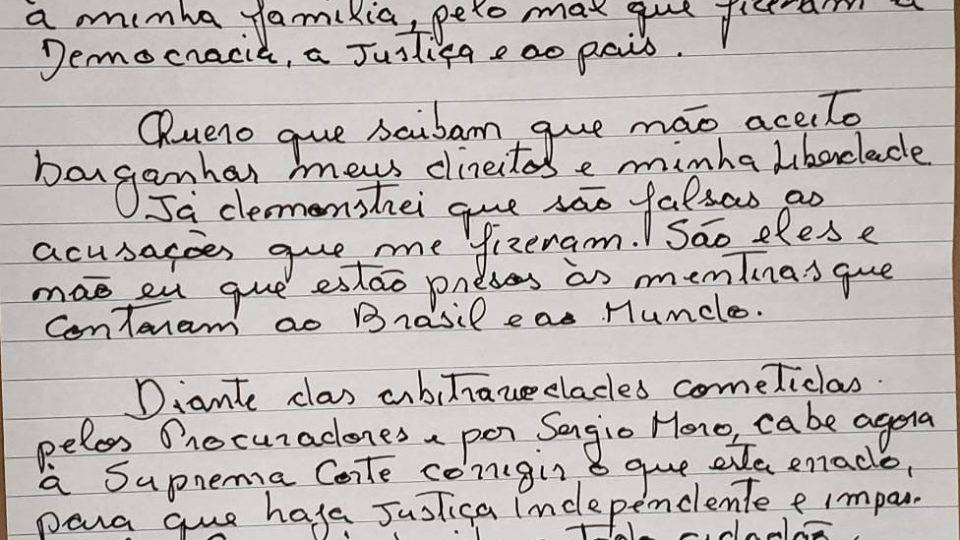 à minha família, pelo mal que fizeram à
Democracia, a Justiça e ao país.
Quero que saibam que não aceito
barganhar meus direitos e minha Liberdade
Já demonstrei que são falsas as
acusações que me fizeram. São eles e
não eu que estão presos às mentiras que
Contaram ao Brasil e ao Mundo.
Diante das arbitrariedades cometidas
pelos Procuradores e por Sergio Moro, cabe agora
à Suprema Corte corrigir o que esta errado,
para que haja Justiça Independente e impar.
Todo cidadão